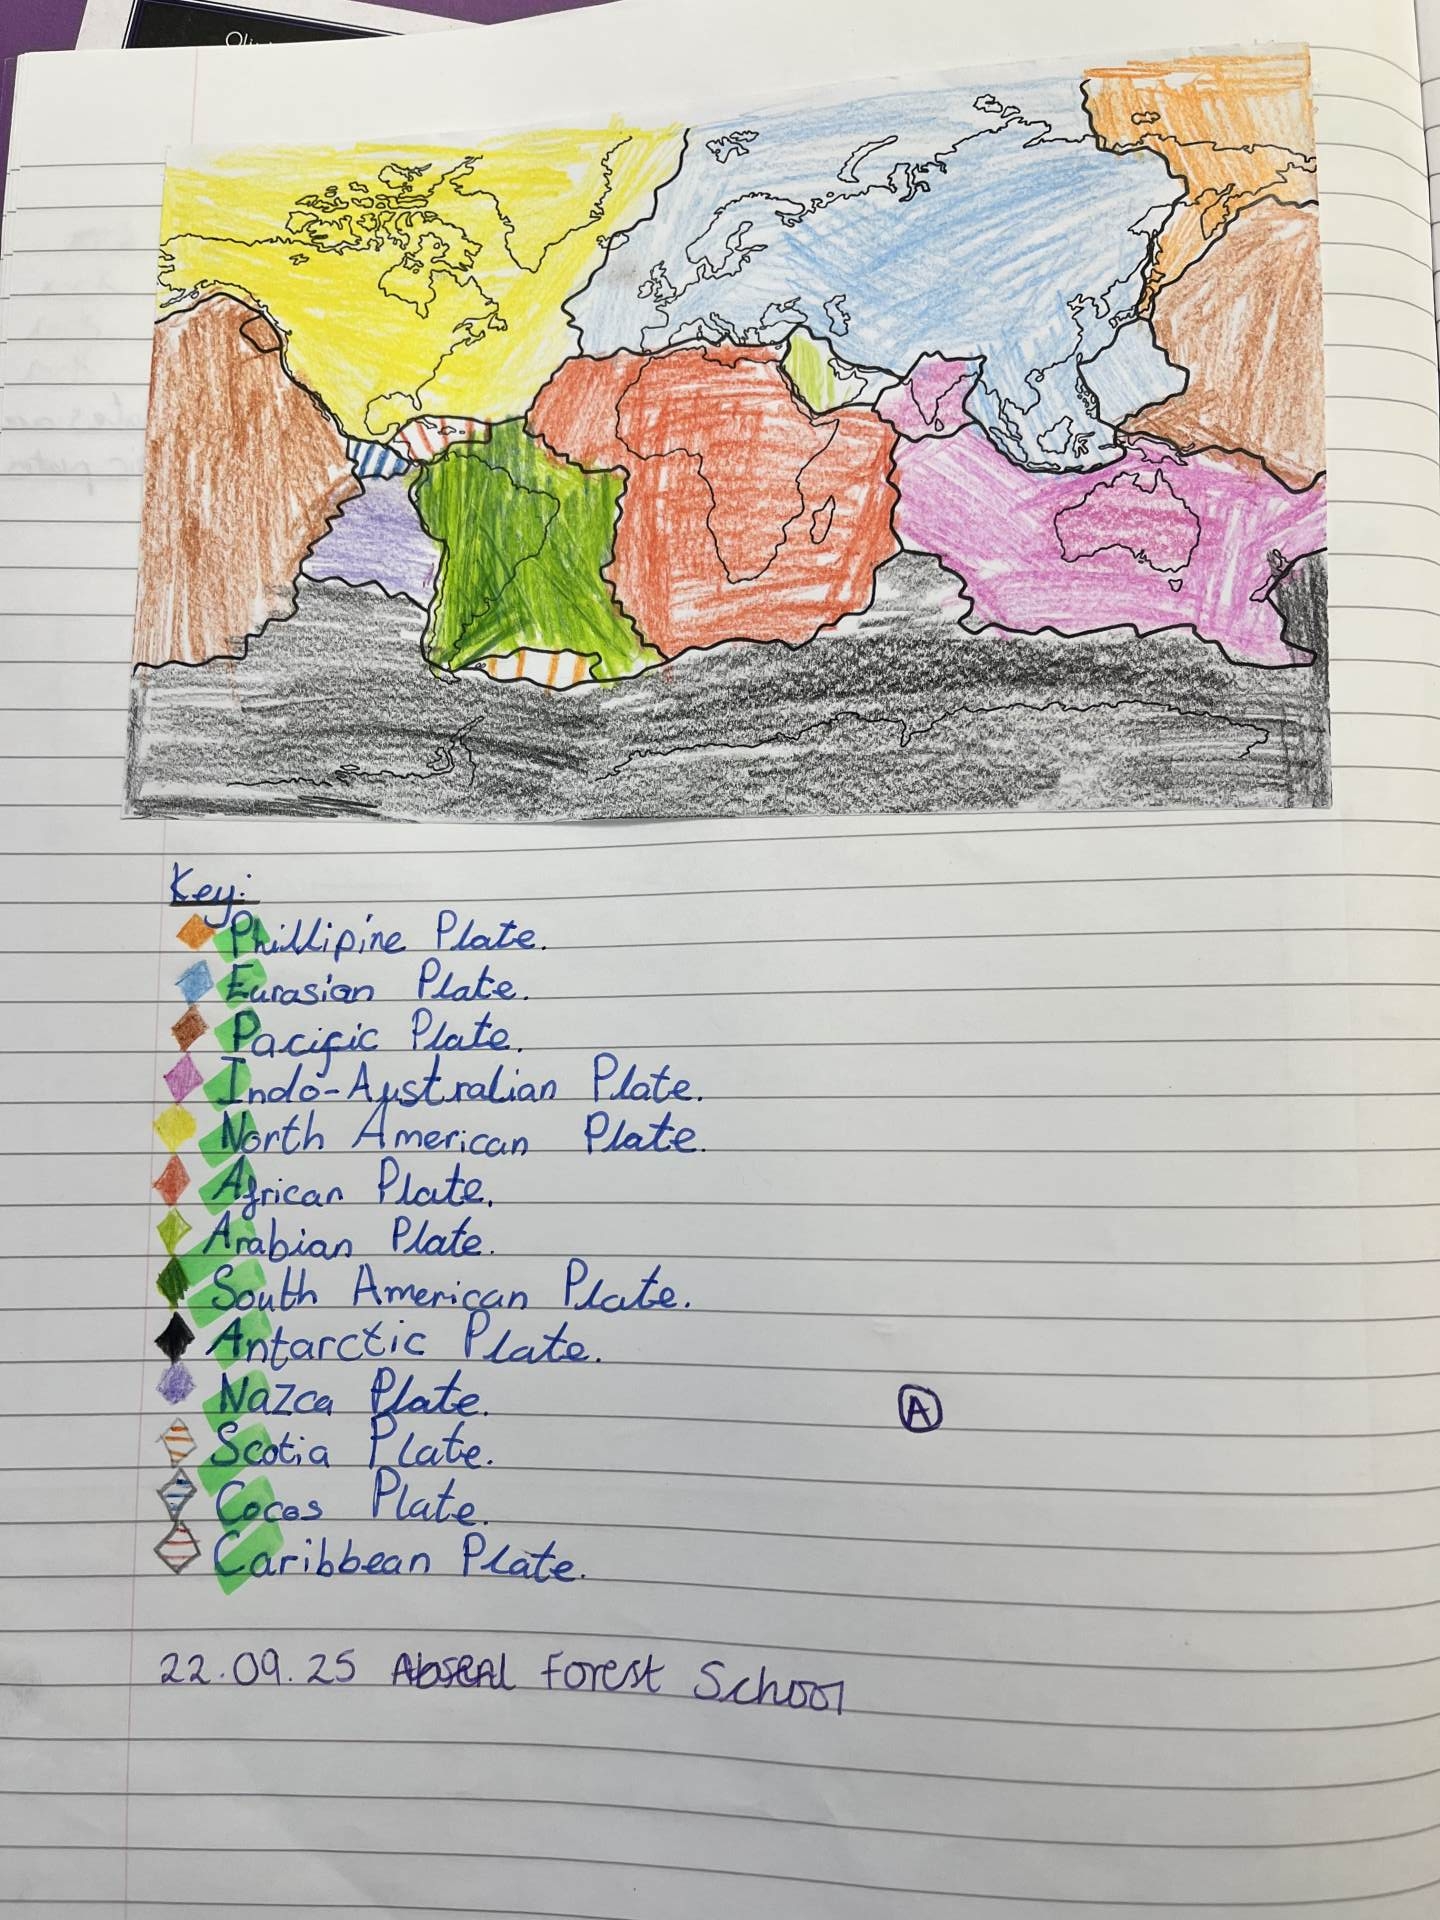 Key:
Phillipine Plate.
Eurasian Plate.
Pacific Plate.
Indo-Australian Plate.
North American Plate.
African Plate.
Arabian Plate.
South American Plate.
Antarctic Plate.
Nazca Plate.
A
Scotia Plate.
Cocos Plate.
Caribbean Plate.
22.09.25 Forest School